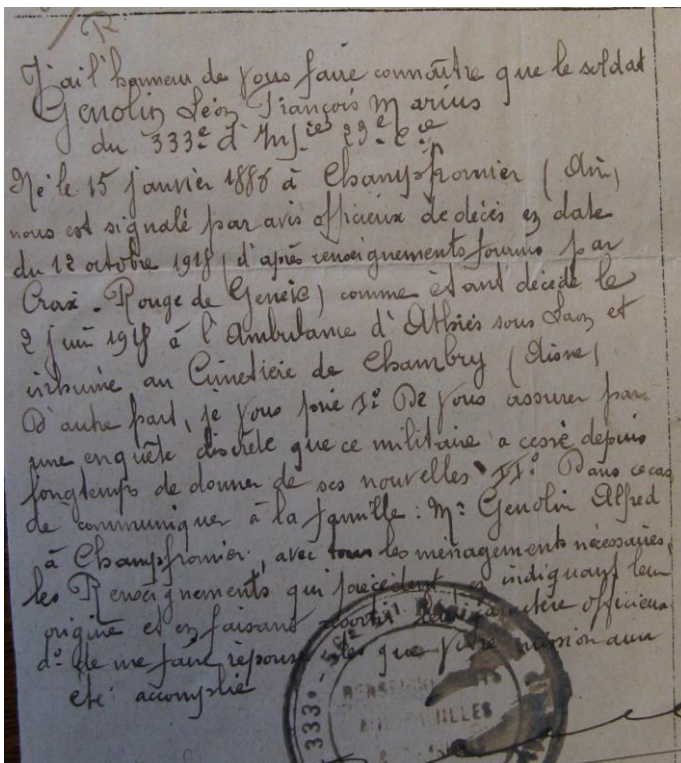 R
J'ai l'honneur de vous faire connaître que le soldat
Genolin Léon François Marius
du 333e d'Infie 23e Cie
Né le 15 janvier 1886 à Champfromier (Ain)
nous est signalé par avis officieux de décès en date
du 12 octobre 1918 (d'après renseignements fournis par
Croix-Rouge de Genève) comme étant décédé le
2 juin 1918 à l'Ambulance d'Athies sous Laon et
inhumé au Cimetière de Chambry (Aisne)
D'autre part, je vous prie 1º De vous assurer par
une enquête discrète que ce militaire a cessé depuis
longtemps de donner de ses nouvelles IIº Dans ce cas
de communiquer à la famille : Mr Genolin Alfred
à Champfromier, avec tous les ménagements nécessaires,
les Renseignements qui précèdent, en indiquant leur
origine et en faisant ressortir leur caractère officieux
dº de me faire réponse dès que votre mission aura
été accomplie
333e
RENSEIGNEMENTS
AUX FAMILLES